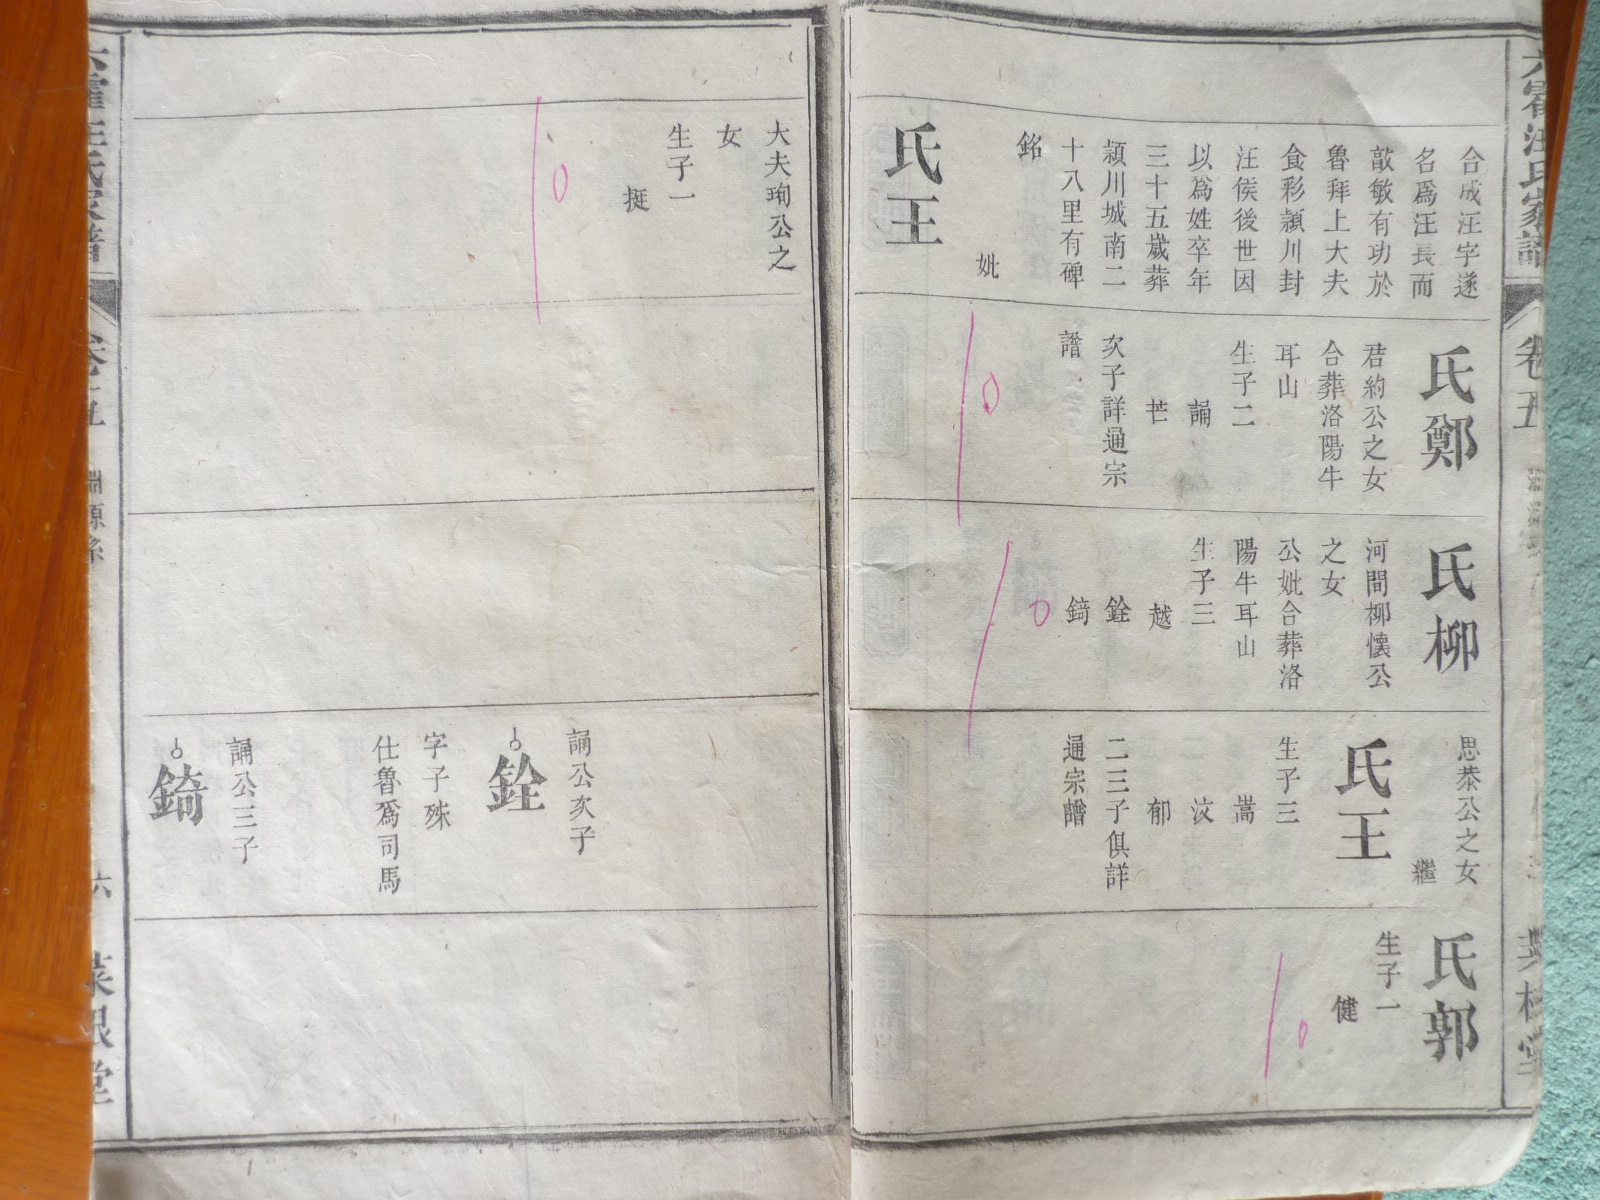 六霍汪氏家譜
卷五
合成汪字遂
名爲汪長而
敵敏有功於
魯拜上大夫
食彩頴川封
汪侯後世因
以爲姓卒年
三十五歲葬
頴川城南二
十八里有碑
銘
妣
氏王
氏鄭
君約公之女
合葬洛陽牛
耳山
生子二
誦
芒
次子詳通宗
譜
氏柳
河間柳懷公
之女
公妣合葬洛
陽牛耳山
生子三
越
銓
錡
思恭公之女
繼
氏王
生子三
嵩
汶
郁
二三子俱詳
通宗譜
氏郭
生子一
健
大夫珣公之
女
生子一
挺
誦公次子
銓
字子殊
仕魯爲司馬
誦公三子
錡
六霍汪氏家譜
卷五
淵源系
六
菜根堂